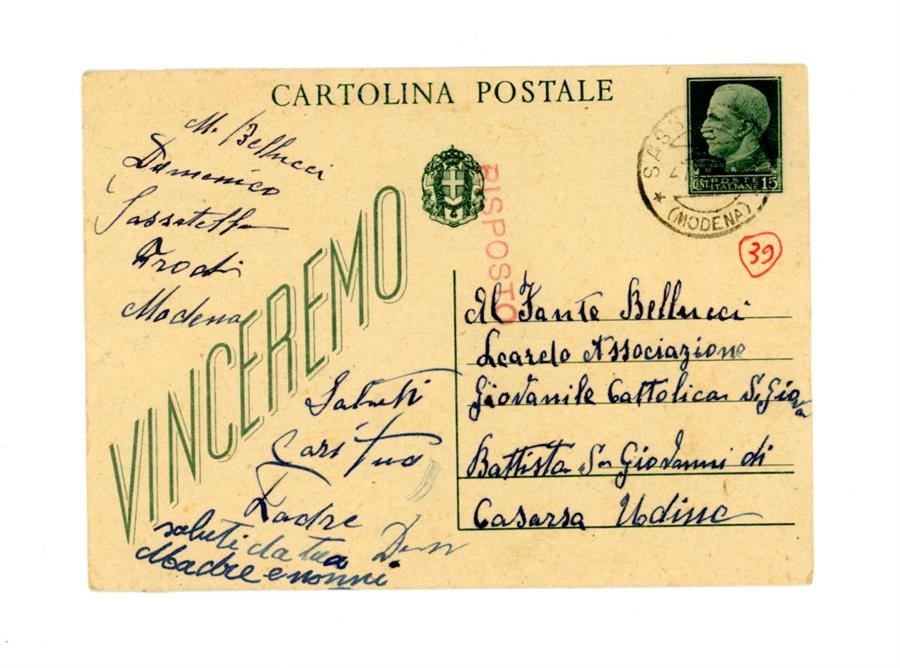 CARTOLINA POSTALE
M. Bellucci
Domenico
Sassatella
Frodi
Modena
RISPOSTO
POSTE
ITALIANE
CENT. 15
SASS
* (MODENA)
39
VINCEREMO
Al Fante Bellucci
Leardo Associazione
Giovanile Cattolica S. Giova
Battista Sn Giovanni di
Casarsa Udine
Saluti
Cari Tuo
Padre
saluti da tua
Madre e nonni